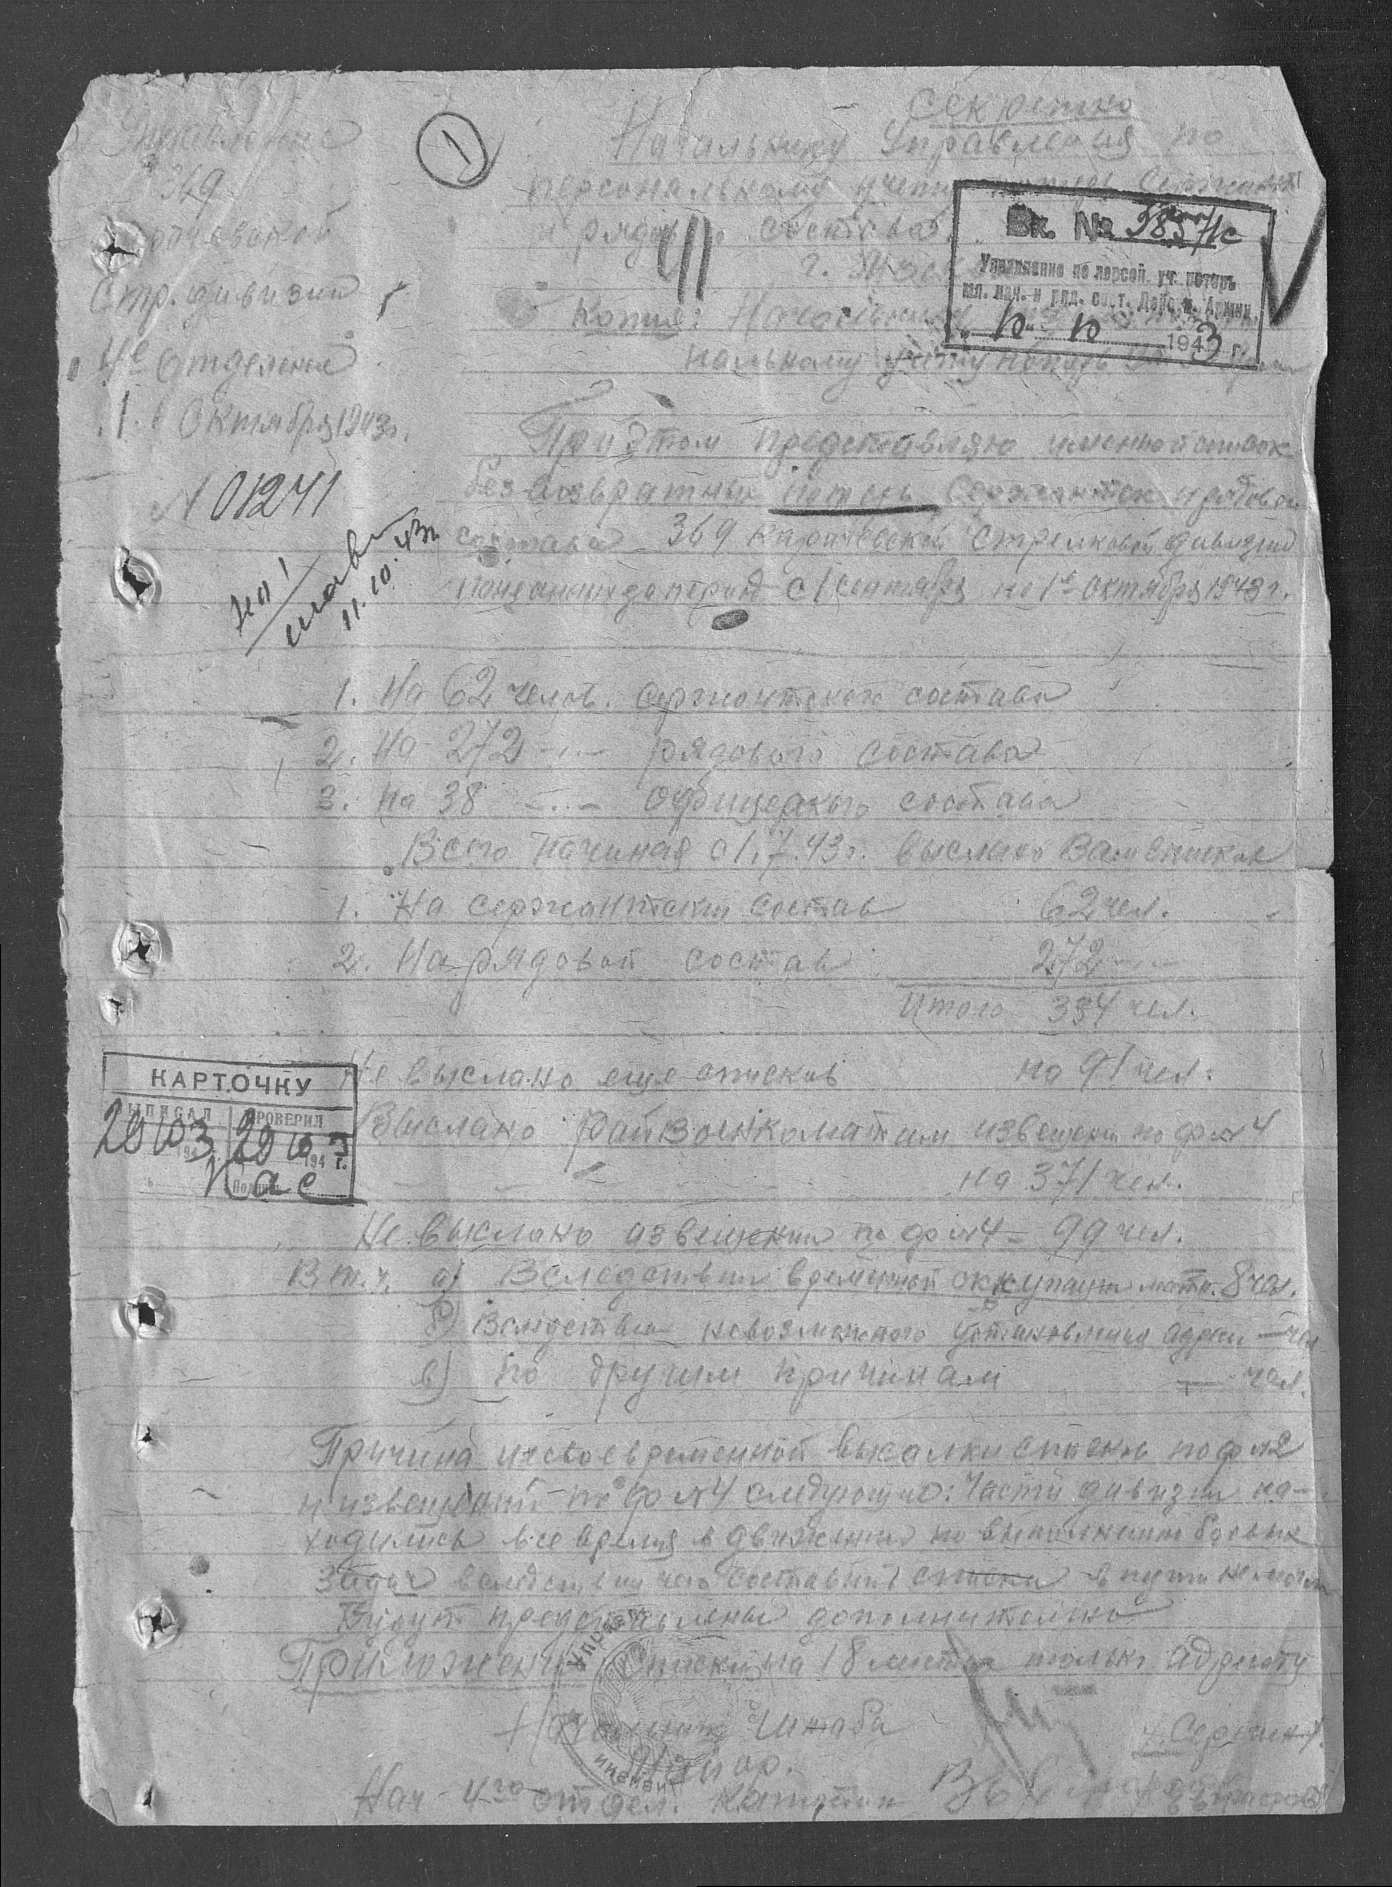 Секретно
Управление
369
Стр. дивизии
4е Отделение
1. Октября 1943г.
N 01241
11.10.43г
1
Начальнику Управления по
персональному учету потерь Сержант
и рядового состава
г. Москва
Копия: Начальнику
нальному учету потерь
Вх. №
Управление по персон. уч. потерь
мл. нач. и ряд. сост. Действ. Армии
10 10 1943 г.
При этом представляю именной список
безвозвратных потерь Сержантск. и рядового
состава 369 Карачевской Стрелковой дивизии
за период с 1 сентября по 1е Октября 1943 г.
1. На 62 челов. сержантского состава
2. На 272 -"- рядового состава
3. На 38 -"- офицерского состава
Всего начиная с 1.7.43г. выслано Вам списков
1. На сержантский состав 62 чел.
2. На рядовой состав 272 -"-
Итого 334 чел.
Не выслано еще списков на 91 чел.
КАРТОЧКУ
ВЫПИСАЛ ПРОВЕРИЛ
Выслано Райвоенкоматам извещен. по ф №4
на 371 чел.
Не выслано извещений по ф №4 - 99 чел.
В т.ч. а) Вследствии временной оккупации мест. 8 чел.
б) Вследствии невозможного установления адреса — чел
в) по другим причинам — чел.
Причина несвоевременной высылки списков по ф №2
и извещений по ф №4 следующие: Части дивизии на-
ходились все время в движении по выполнению боевых
задач вследствии чего составить списки в пути не могли
Будут представлены дополнительно
Приложение: Списки на 18 листах только адресату
Начальник Штаба
Майор.
Нач 4го отдел. Капитан